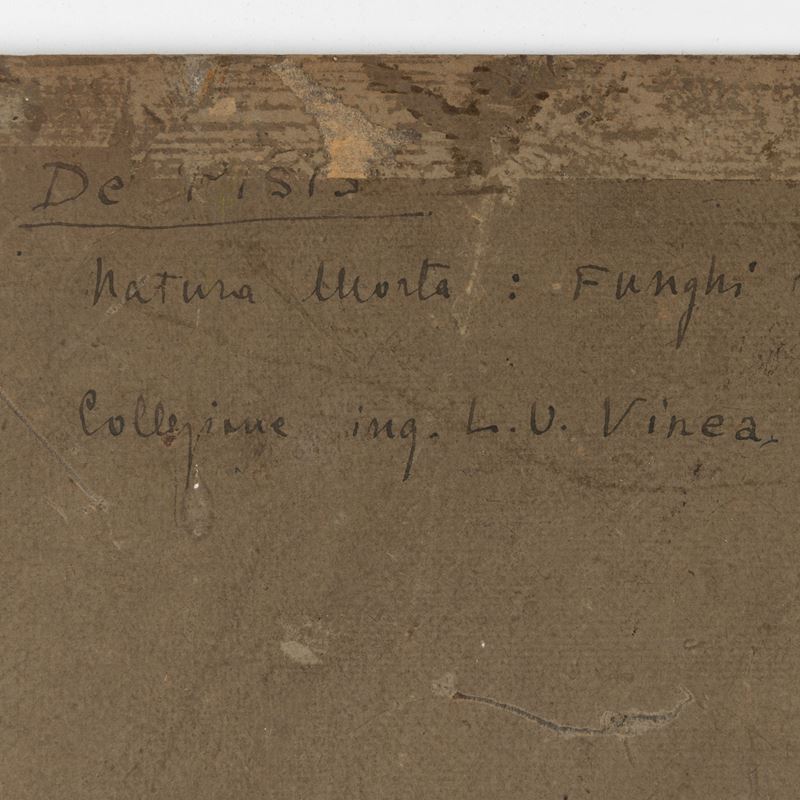 De Pisis
Natura Morta : Funghi
Collezione ing. L.V. Vinea,